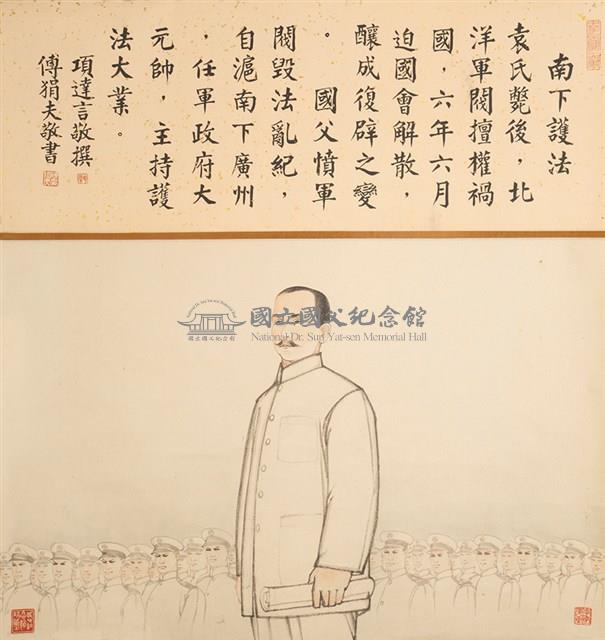 南下護法
袁氏斃後，北
洋軍閥擅權禍
國，六年六月
迫國會解散，
釀成復辟之變
。　國父憤軍
閥毀法亂紀，
自滬南下廣州
，任軍政府大
元帥，主持護
法大業。
項達言敬撰
傅狷夫敬書
國立國父紀念館
National Dr. Sun Yat-sen Memorial Hall
國立國父紀念館